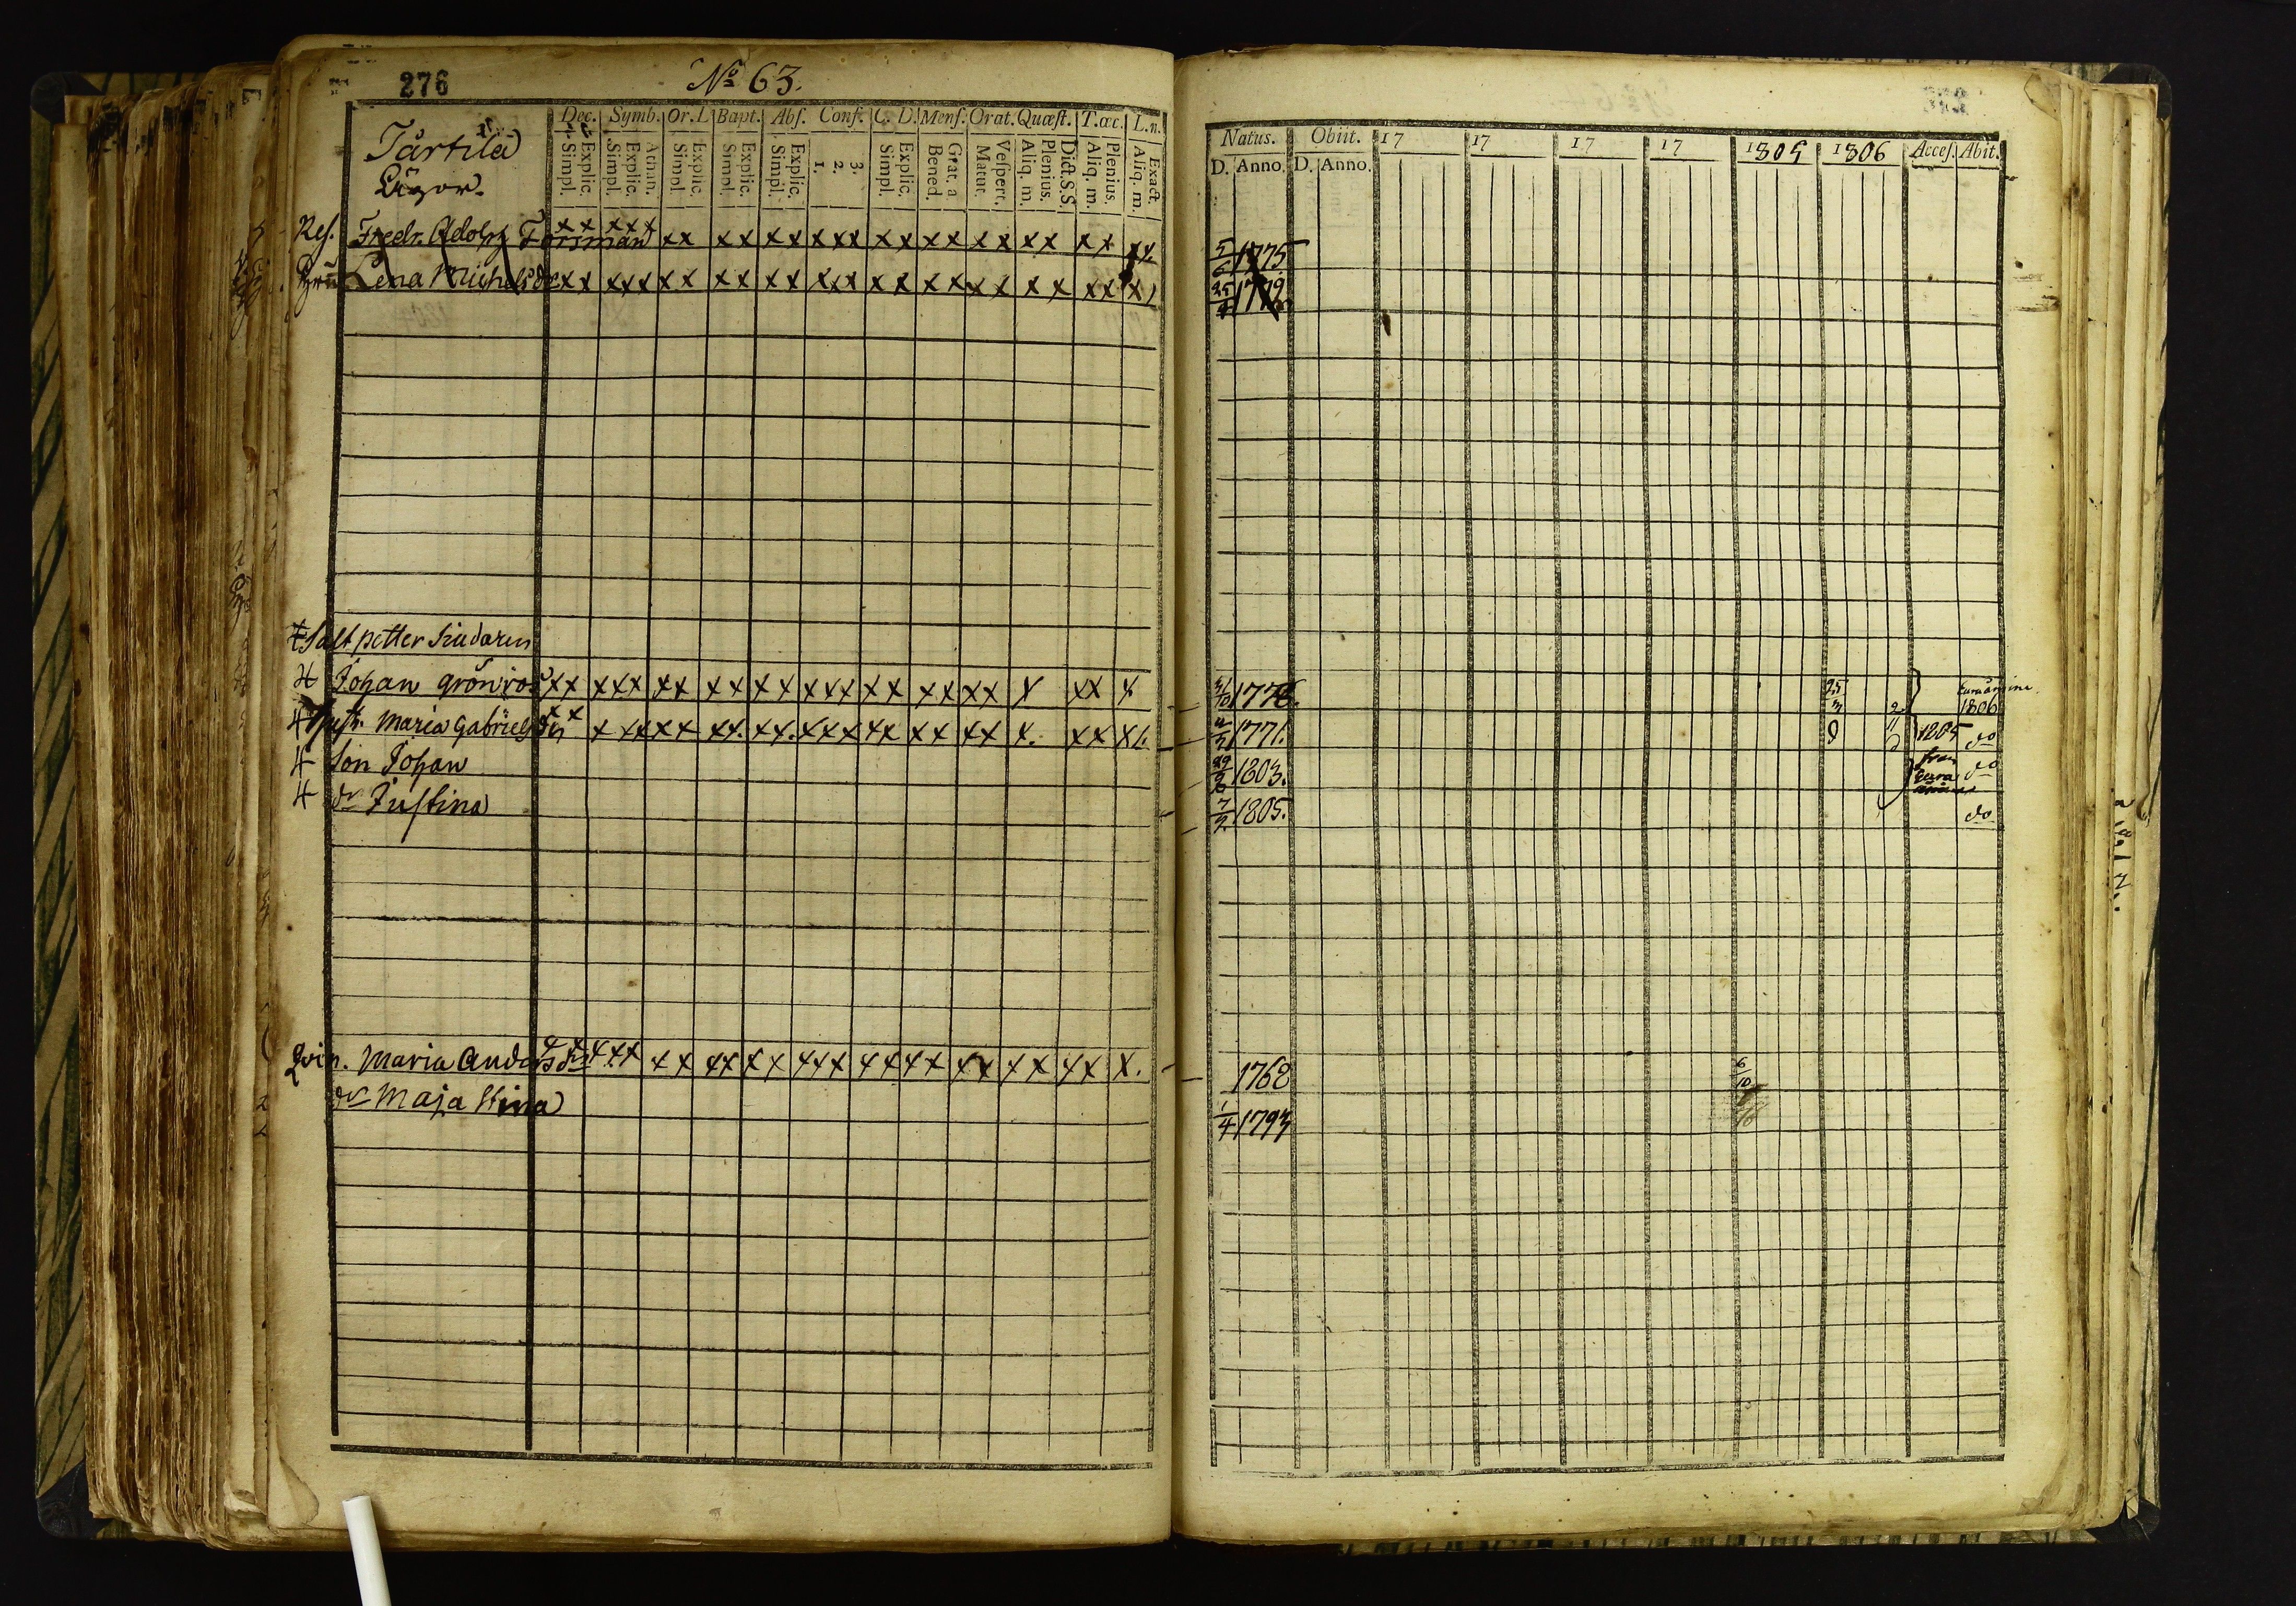 276
No 63.
Dec. Symb. Or. L. Bapt. Abs. Conf. C. D. Mens. Orat. Quæst. T. œc. L. n.
Tårtila
Explic. Simpl. Athan. Explic. Simpl. Explic. Simpl. Explic. Simpl. Explic. Simpl. 3. 2. 1. Explic. Simpl. Grat. a Bened. Vespert. Matut. Dict. S.S. Plenius. Aliq. m. Plenius. Aliq. m. Exact. Aliq. m.
Fredr. Adolph Forsman xx xxx xx xx xx xxx xx xx xx xx xx xx
Lena Michelsdr xx xxx xx xx xx xxx xx xx xx xx xx x
Saltpetter Siudaren
Johan Grönroos xx xxx xx xx xx xxx xx xx xx x xx x
Hustr. Maria Gabrielsdr x x x xx xx xx. xx. xxx xx xx xx x. xx x
Son Johan
dr Justina
Qvin. Maria Andersdr xxx xx xx xx xxx xx xx xx xx xx x.
dr Maja Stina
Natus. Obiit. 17 17 17 17 1805 1806 Acces. Abit.
D. Anno. D. Anno.
5/6 1775
25/4 1779
31/10 1776. 25/3 Euraåminne
1806
4/7 1771. 1805 do
29/6 1803. från Eura do
7/7 1805. do
1768 6/10
1/4 1793